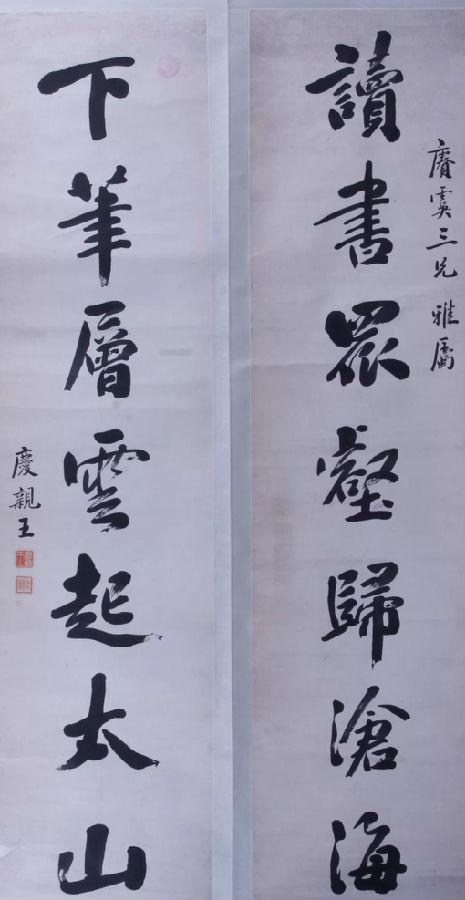 賡虞三兄 雅屬
讀書眾壑歸滄海
下筆層雲起太山
慶親王